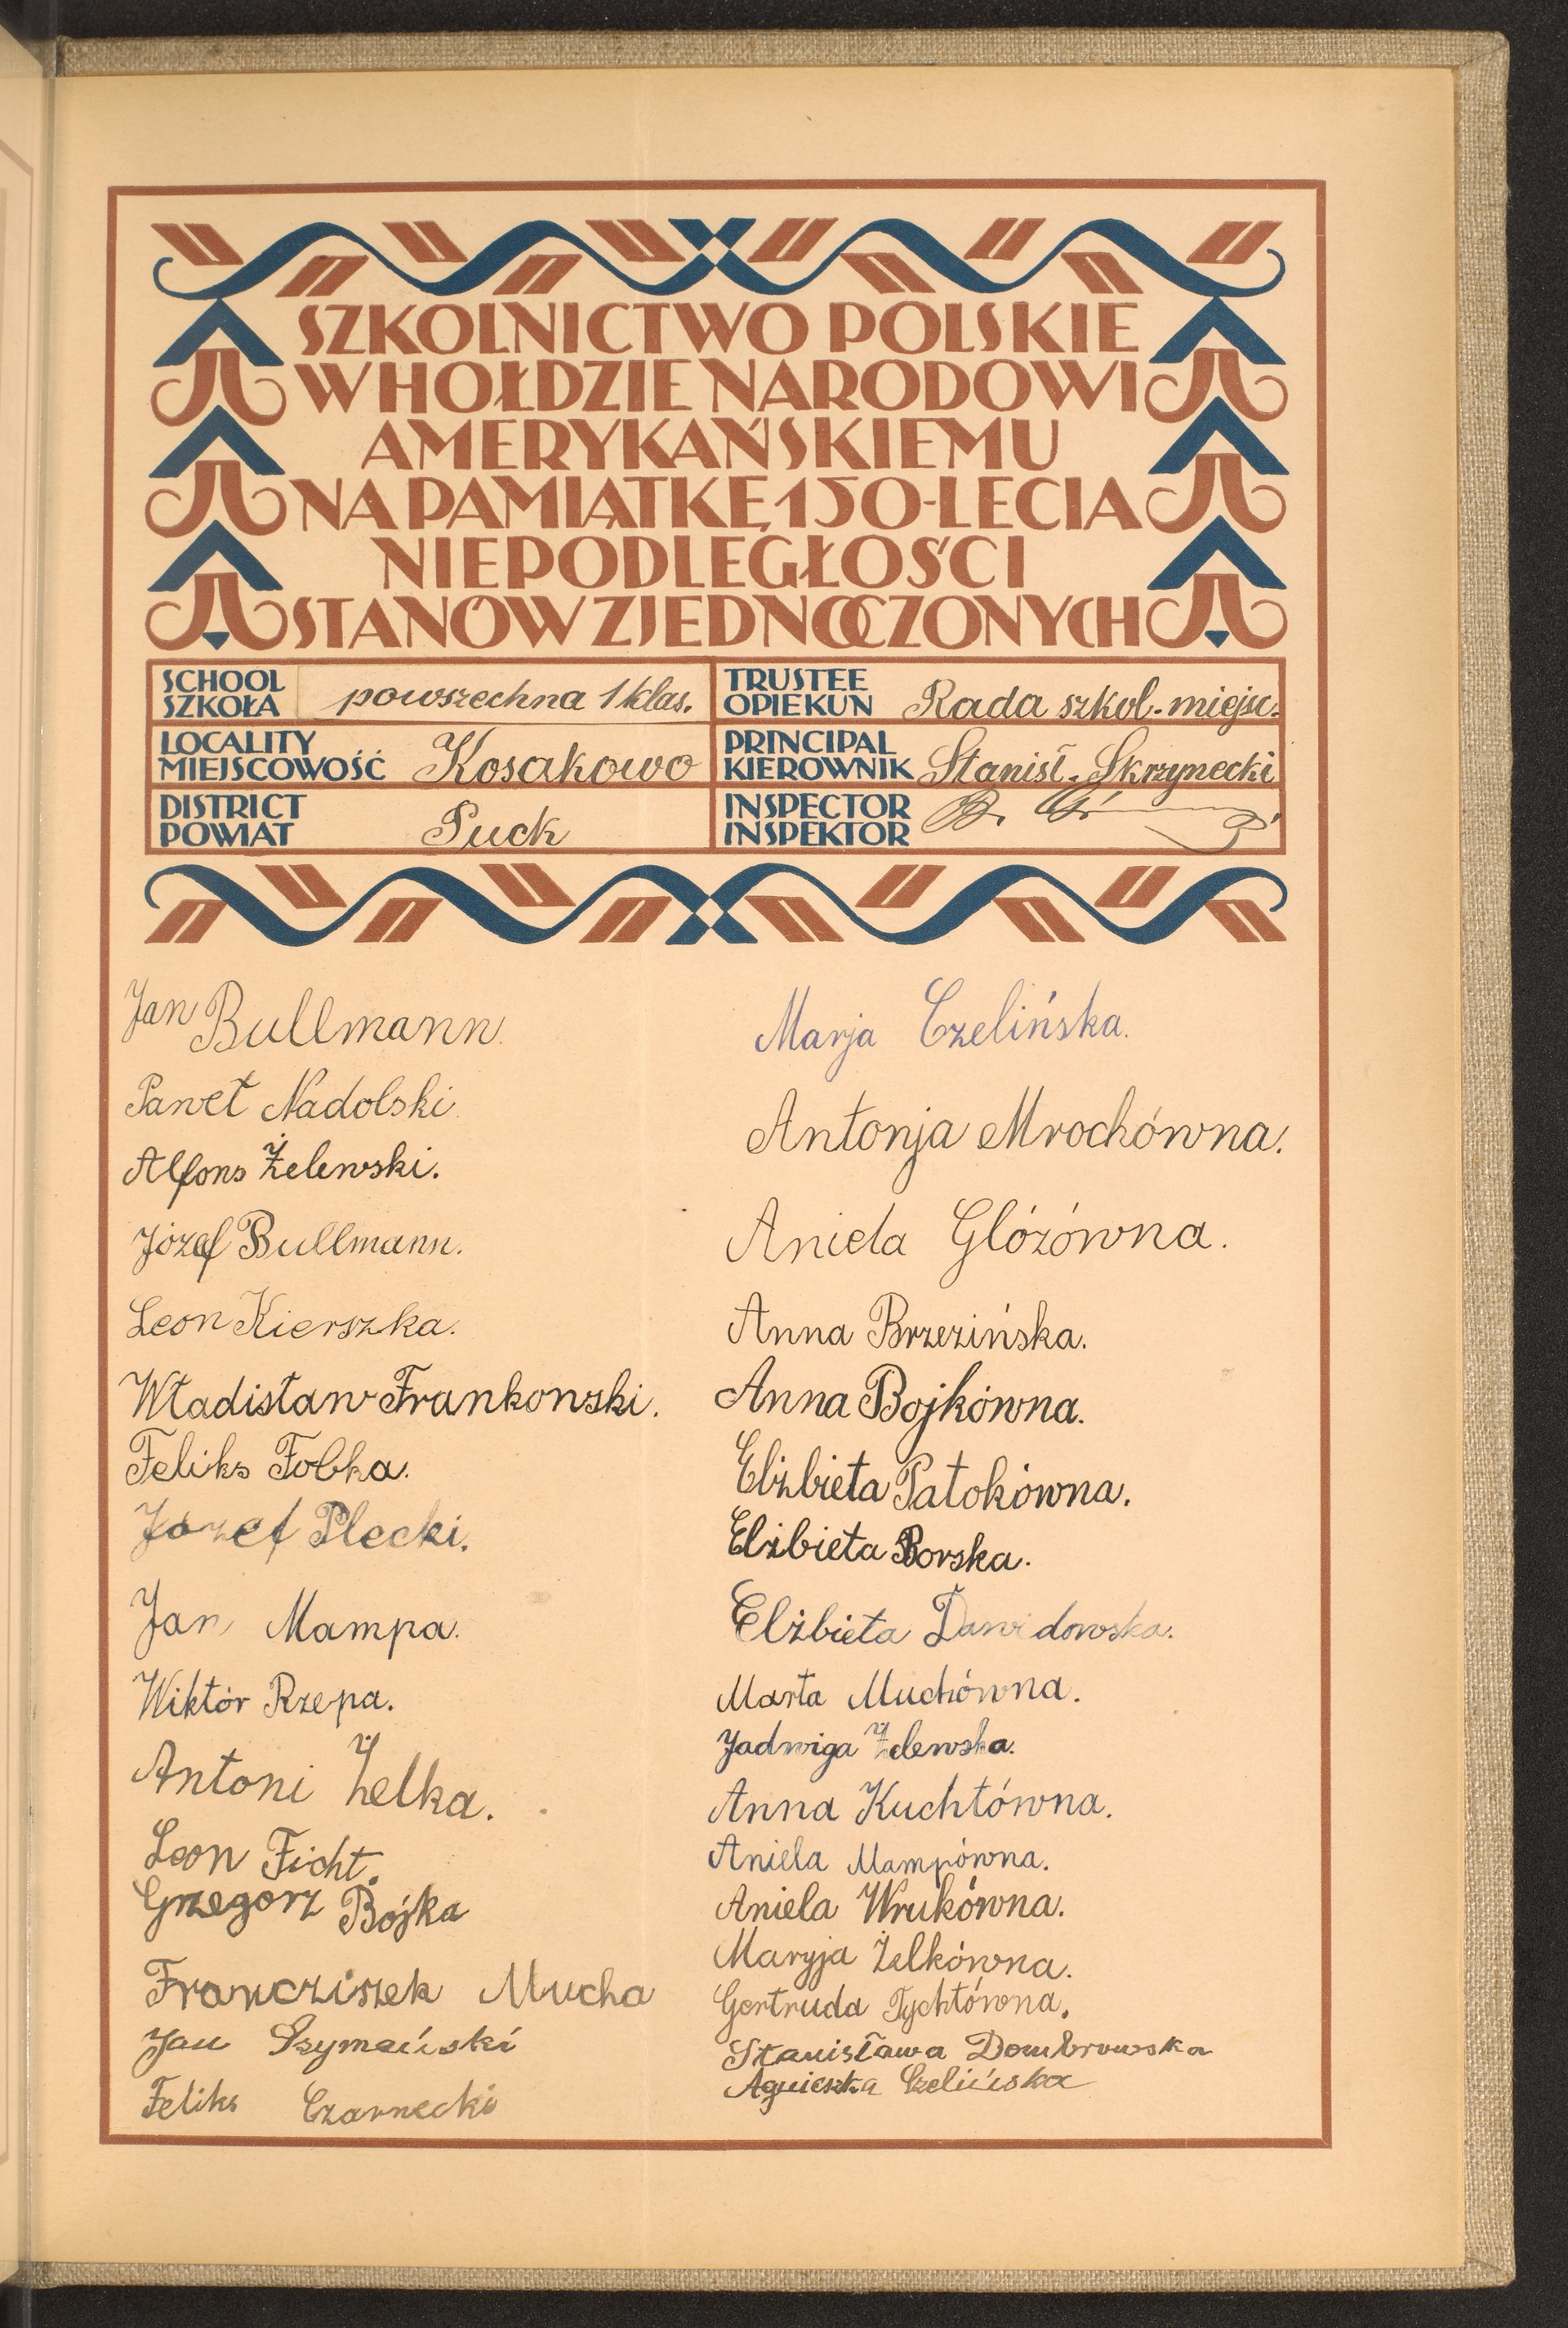 SZKOLNICTWO POLSKIE
W HOŁDZIE NARODOWI
AMERYKAŃSKIEMU
NA PAMIĄTKĘ 150-LECIA
NIEPODLEGŁOŚCI
STANÓW ZJEDNOCZONYCH
SCHOOL
SZKOŁA
powszechna 1 klas.
TRUSTEE
OPIEKUN
Rada szkol. miejsc.
LOCALITY
MIEJSCOWOŚĆ
Kosakowo
PRINCIPAL
KIEROWNIK
Stanisł. Skrzynecki
DISTRICT
POWIAT
Puck
INSPECTOR
INSPEKTOR
Jan Bullmann.
Paweł Nadolski
Alfons Żelewski.
Józef Bullmann.
Leon Kierszka.
Władisław Frankowski.
Feliks Fobka.
Józef Plecki.
Jan Mampa.
Wiktór Rzepa.
Antoni Żelka.
Leon Ficht.
Grzegorz Bójka
Francziszek Mucha
Jan Szymański
Feliks Czarnecki
Marja Czelińska.
Antonja Mrochówna.
Aniela Glózówna.
Anna Brzezińska.
Anna Bojkówna.
Elżbieta Patokówna.
Elżbieta Borska.
Elżbieta Dawidowska.
Marta Muchówna.
Jadwiga Żelewska.
Anna Kuchtówna.
Aniela Mampówna.
Aniela Wrukówna.
Maryja Żelkówna.
Gertruda Tychtówna.
Stanisława Dombrowska
Agnieszka Czelińska